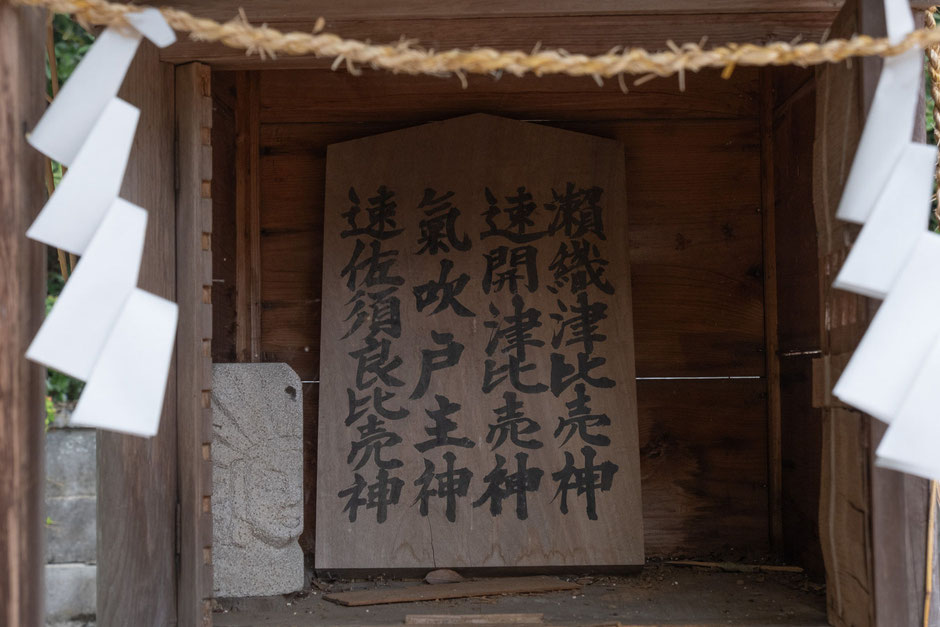 瀨織津比売神
速開津比売神
氣吹戸主神
速佐須良比売神